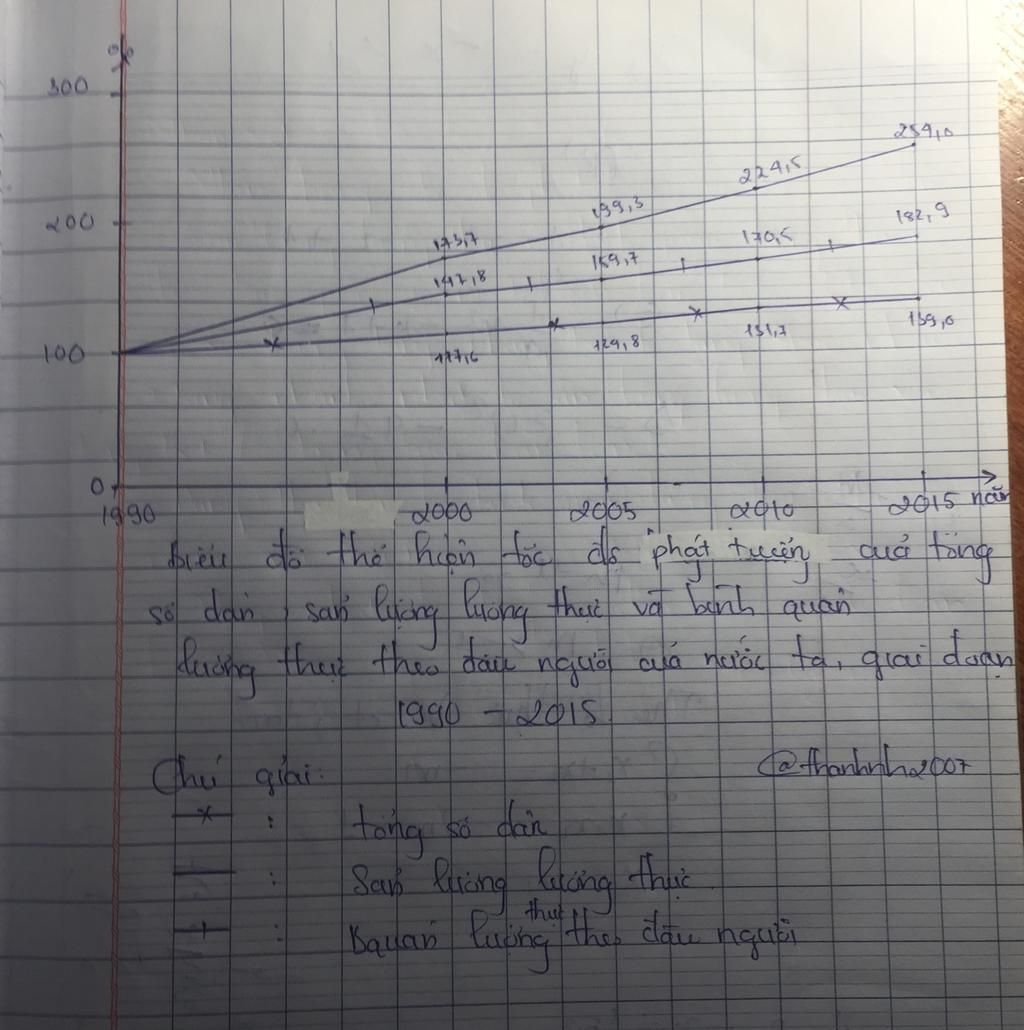 %
300
254,0
224,5
200
199,3
182,9
173,7
170,5
159,7
147,8
100
139,0
131,7
129,8
117,6
0
1990 2000 2005 2010 2015 năm
Biểu đồ thể hiện tốc độ phát triển của tổng
số dân, sản lượng lương thực và bình quân
lương thực theo đầu người của nước ta, giai đoạn
1990 - 2015
Chú giải: @thanhnh2007
: tổng số dân
: Sản lượng lương thực
: Bquân lương thực theo đầu người